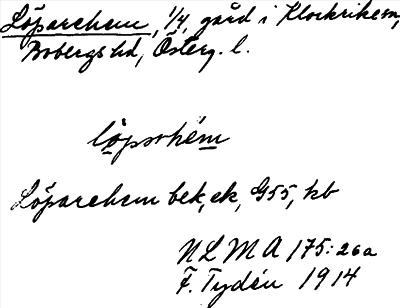 Löparehem, 1/4, gård i Klockrikem,
Bobergs hd, Österg. l.
löpsrhem
Löparehem bek, ek, G55, kb
NLMA 175:26a
F. Tydén 1914